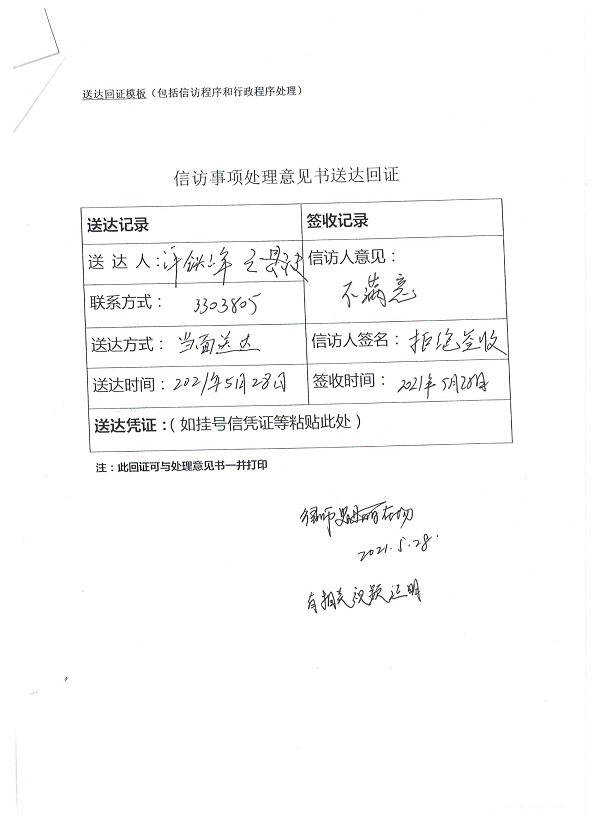 送达回证模板（包括信访程序和行政程序处理）
信访事项处理意见书送达回证
送达记录 签收记录
送 达 人： 信访人意见：
不满意
联系方式： 3303805
送达方式：当面送达 信访人签名：拒绝签收
送达时间：2021年5月28日 签收时间：2021年5月28日
送达凭证：（如挂号信凭证等粘贴此处）
注：此回证可与处理意见书一并打印
律师 在场
2021.5.28.
有相关视频证明